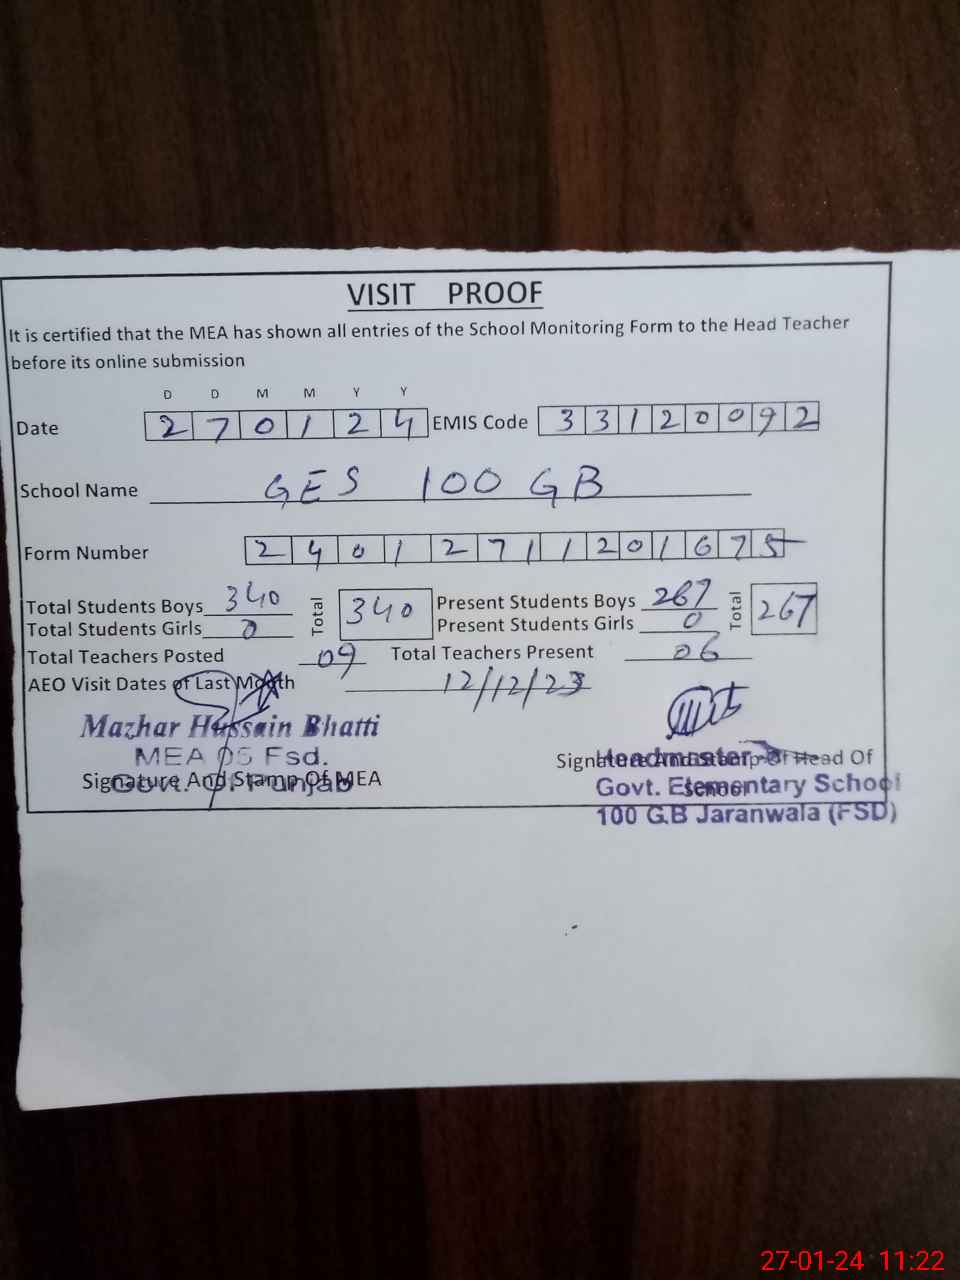 VISIT PROOF
It is certified that the MEA has shown all entries of the School Monitoring Form to the Head Teacher
before its online submission
D D M M Y Y
Date 2 7 0 1 2 4 EMIS Code 3 3 1 2 0 0 9 2
School Name GES 100 GB
Form Number 2 4 0 1 2 7 1 1 2 0 1 6 7 5
Total Students Boys 340 Total 340 Present Students Boys 267 Total 267
Total Students Girls 0 Present Students Girls 0
Total Teachers Posted 09 Total Teachers Present 06
AEO Visit Dates of Last Month 12/12/23
Mazhar Hussain Bhatti
MEA 05 Fsd.
Govt. Of Punjab
Signature And Stamp Of MEA
Signature And Stamp Of Head Of
School
Headmaster
Govt. Elementary School
100 G.B Jaranwala (FSD)
27-01-24 11:22